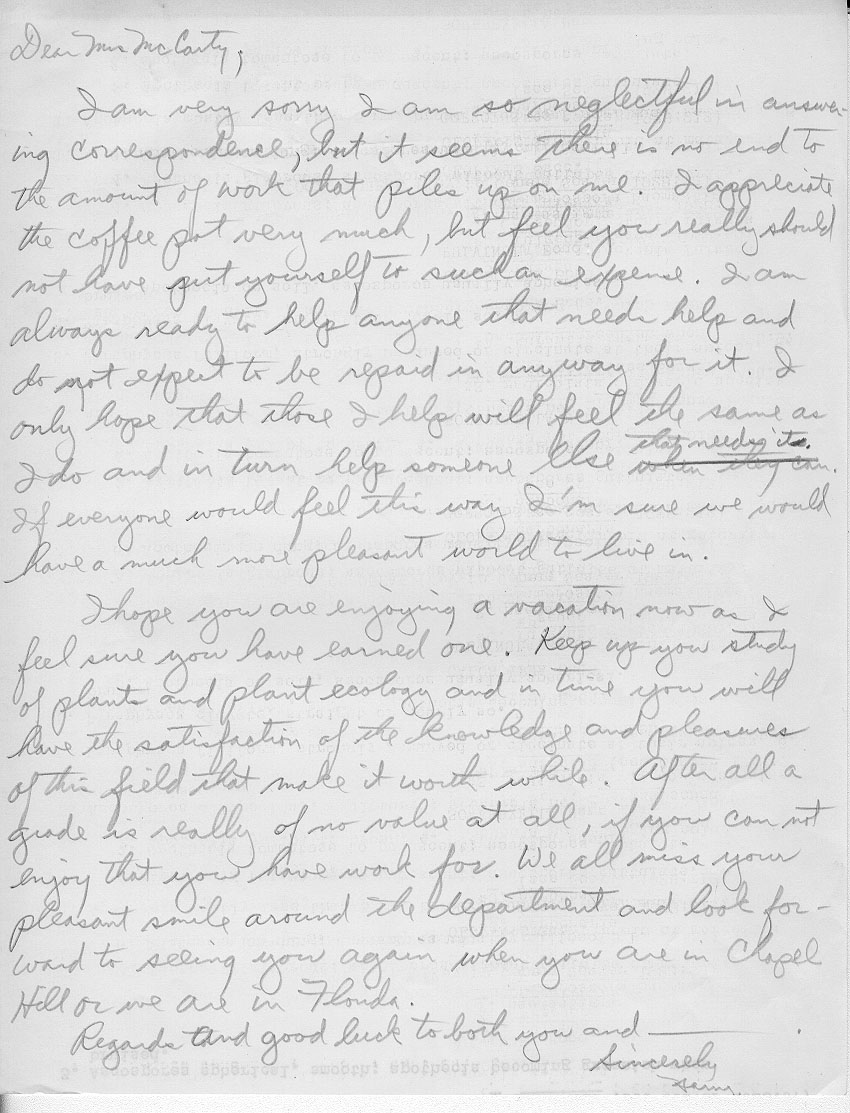 Dear Mrs McCarty,
I am very sorry I am so neglectful in answer-
ing correspondence, but it seems there is no end to
the amount of work that piles up on me. I appreciate
the coffee pot very much, but feel you really should
not have put yourself to such an expense. I am
always ready to help anyone that needs help and
do not expect to be repaid in anyway for it. I
only hope that those I help will feel the same as
that needs it.
I do and in turn help someone else when they can.
If everyone would feel this way I'm sure we would
have a much more pleasant world to live in.
I hope you are enjoying a vacation now as I
feel sure you have earned one. Keep up you study
of plants and plant ecology and in time you will
have the satisfaction of the knowledge and pleasures
of this field that make it worth while. After all a
grade is really of no value at all, if you can not
enjoy that you have work for. We all miss your
pleasant smile around the department and look for-
ward to seeing you again when you are in Chapel
Hill or we are in Florida.
Regards and good luck to both you and
Sincerely